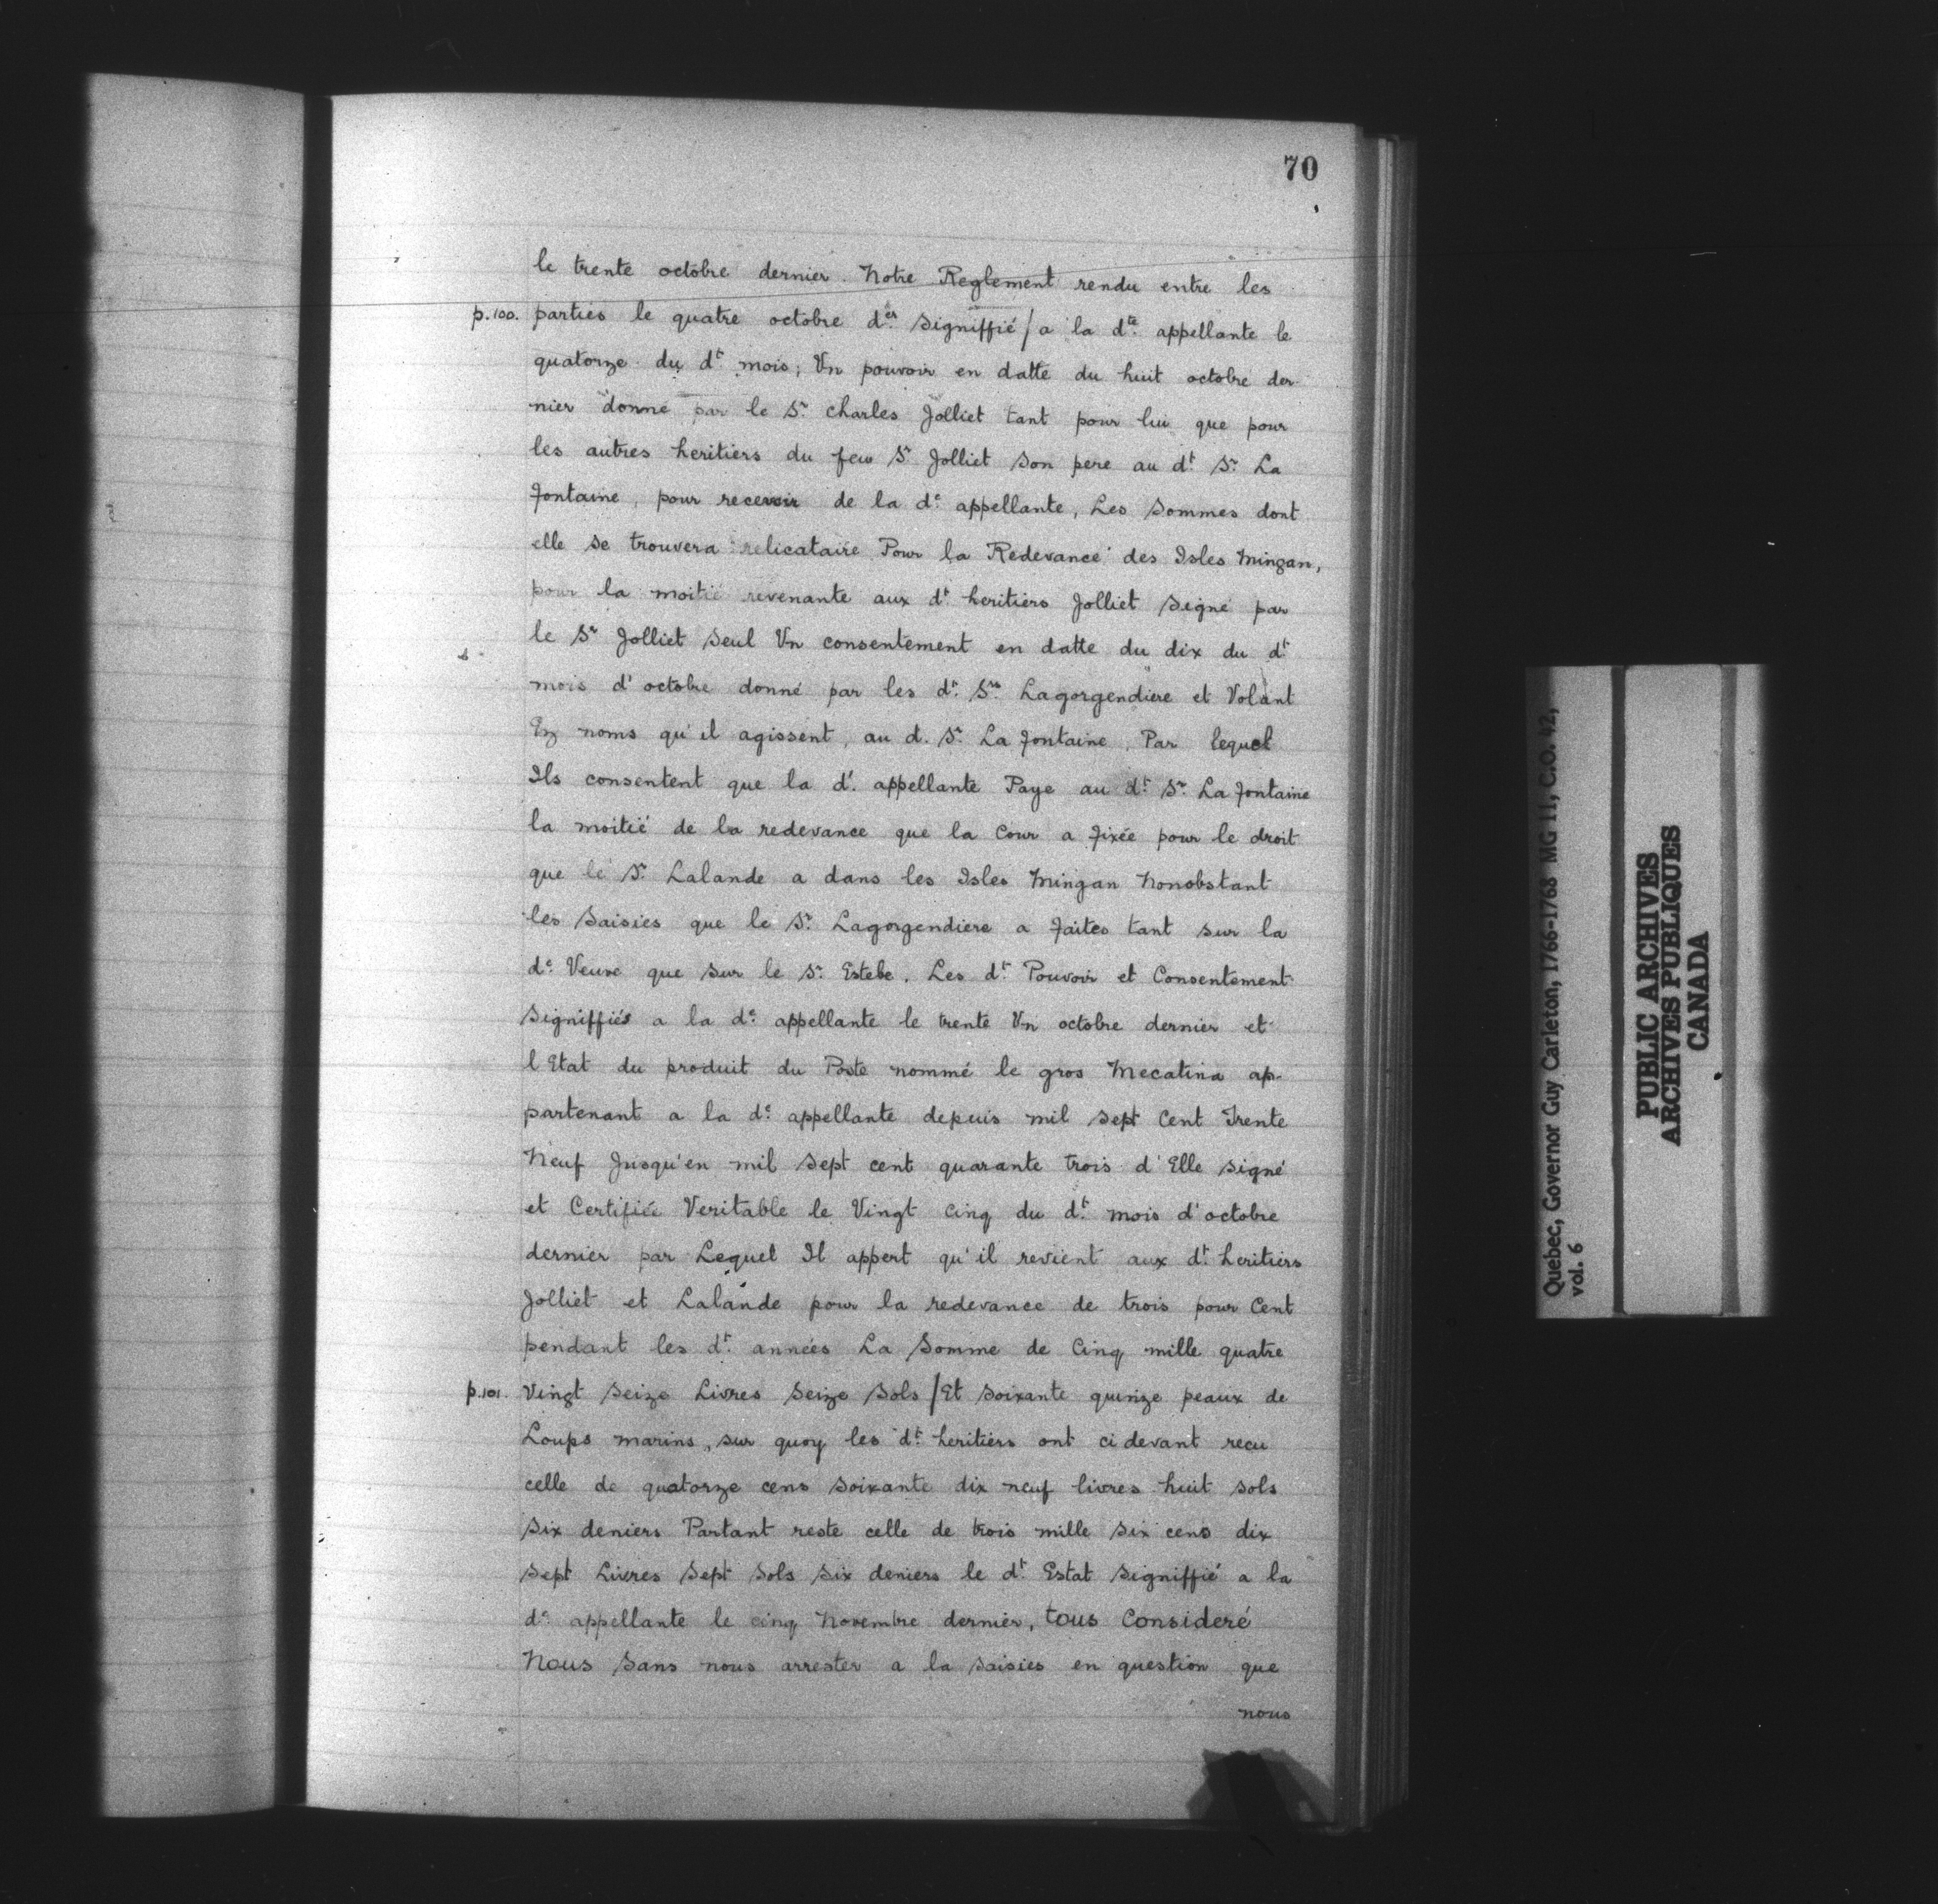 70
le trente octobre dernier. Notre Reglement rendu entre les
p.100. parties le quatre octobre d.er Signiffié / a la d.te appellante le
quatorze du d.t mois; Vn pouvoir en datte du huit octobre der-
nier donné par le S.r charles Jolliet tant pour lui que pour
les autres heritiers du feu S.r Jolliet Son pere au d.t S.r La
fontaine, pour recevoir de la d.e appellante, Les Sommes dont
elle se trouvera relicataire Pour la Redevance des Isles Mingan,
pour la moitié revenante aux d.t heritiers Jolliet Signé par
le S.r Jolliet Seul Vn consentement en datte du dix du d.t
mois d'octobre donné par les d.t S.rs Lagorgendiere et Volant
Ez noms qu'il agissent, au d. S.r La fontaine, Par lequel
Ils consentent que la d.e appellante Paye au d.t S.r La fontaine
la moitié de la redevance que la Cour a fixée pour le droit
que le S.r Lalande a dans les Isles Mingan Nonobstant
les Saisies que le S.r Lagorgendiere a faites tant sur la
d.e Veuve que Sur le S.r Estebe. Les d.t Pouvoir et Consentement
Signiffiés a la d.e appellante le trente Vn octobre dernier et
l'Etat du produit du Poste nommé le gros Mecatina ap-
partenant a la d.e appellante depuis mil Sept Cent Trente
Neuf Jusqu'en mil Sept cent quarante trois d'Elle signé
et Certifiée Veritable le Vingt Cinq du d.t mois d'octobre
dernier par Lequel Il appert qu'il revient aux d.t heritiers
Jolliet et Lalande pour la redevance de trois pour Cent
pendant les d.t années La Somme de Cinq mille quatre
p.101. Vingt Seize Livres Seize Sols / Et Soixante quinze peaux de
Loups marins, sur quoy les d.t heritiers ont ci devant recu
celle de quatorze cens Soixante dix neuf livres huit sols
Six deniers Partant reste celle de trois mille Six cens dix
Sept Livres Sept Sols Six deniers le d.t Estat Signiffié a la
d.e appellante le cinq Novembre dernier, tous Consideré
Nous Sans nous arrester a la Saisies en question que
nous
Quebec, Governor Guy Carleton, 1766-1768 MG 11, C.O. 42,
vol. 6
PUBLIC ARCHIVES
ARCHIVES PUBLIQUES
CANADA